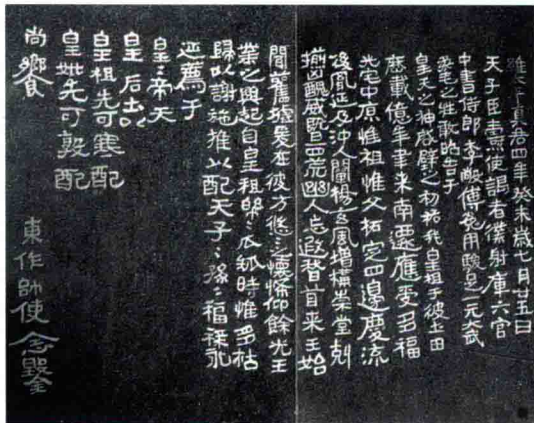 維太平真君四年癸未歲七月廿五日
天子臣燾使謁者僕射庫六官
中書侍郎李敞傅㝹用駿足一元大武
柔毛之牲敢昭告于
皇天之神啟辟之初祐我皇祖于彼土田
歷載億年聿來南遷應受多福
光宅中原惟祖惟父拓定四邊慶流
後胤延及沖人闡揚玄風增構崇堂剋
揃凶醜威暨四荒幽人忘遐稽首來王始
聞舊墟爰在彼方悠〻之懷希仰餘光王
業之興起自皇祖綿〻瓜瓞時惟多祜
歸以謝施推以配天子〻孫〻福祿永
延薦于
皇〻帝天
皇 后土以
皇祖先可寒配
皇妣先可敦配
尚饗
東作帥使念鑿